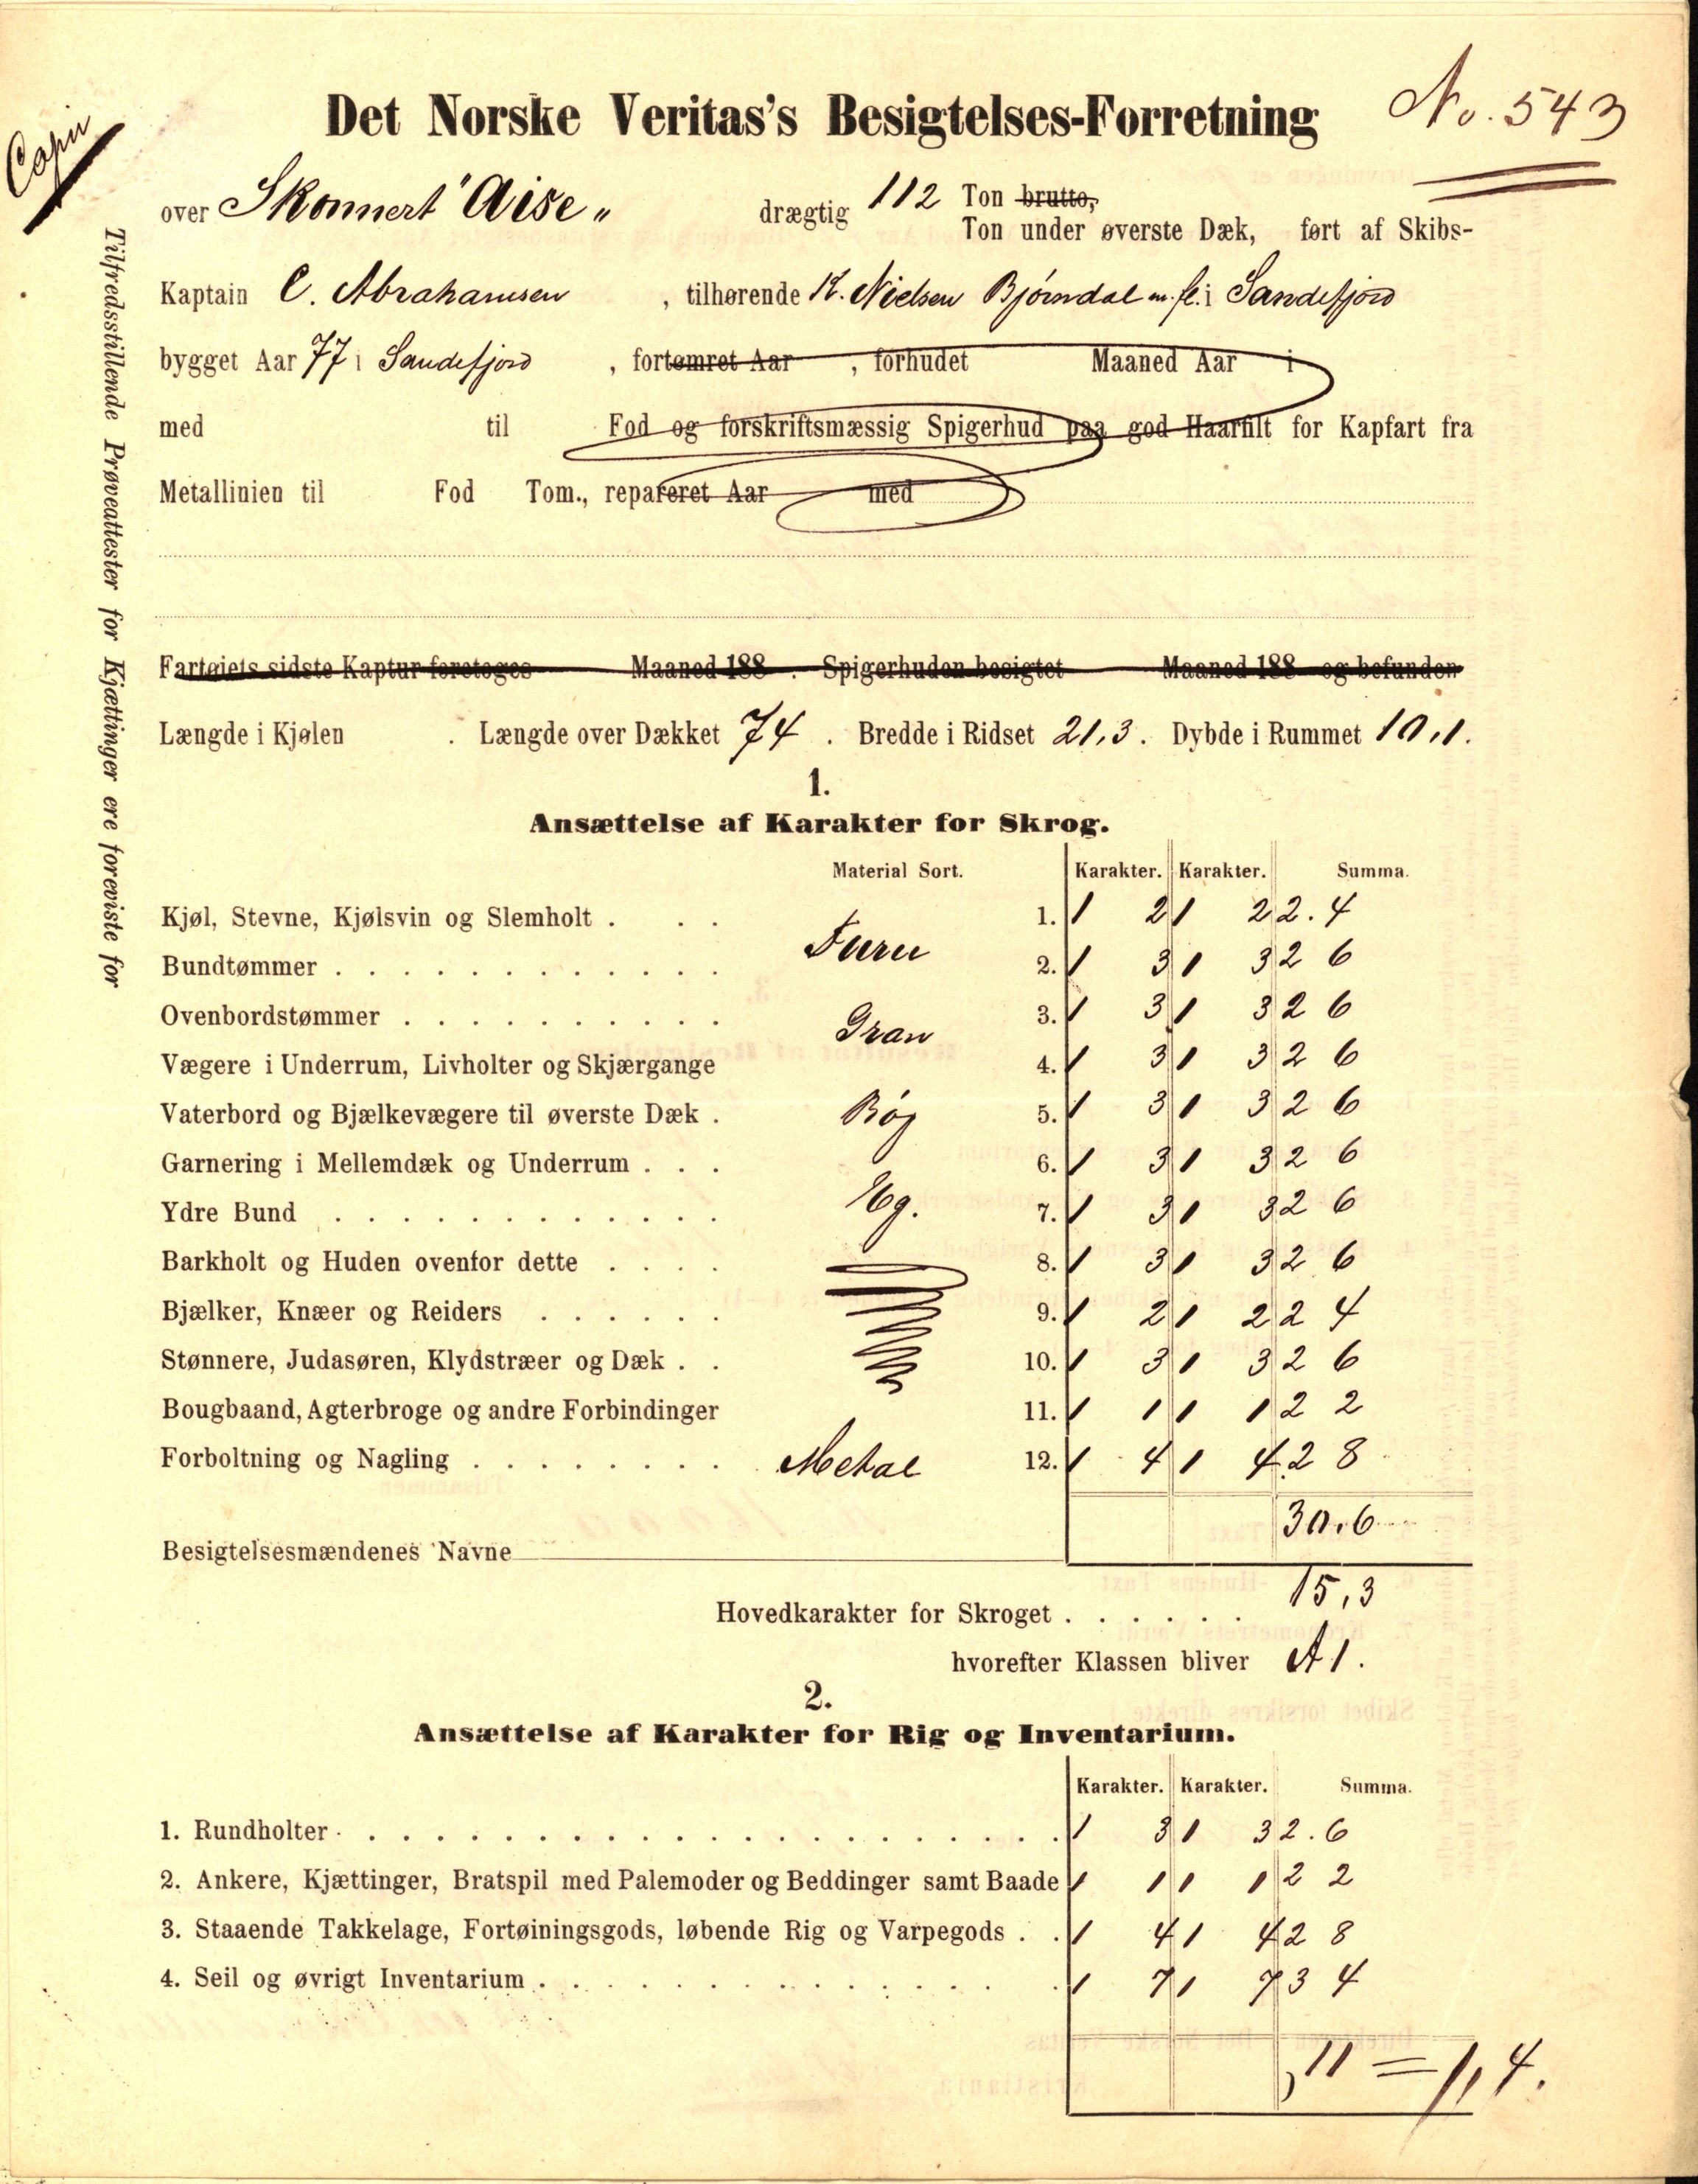 Copi
No. 543
Det Norske Veritas's Besigtelses-Forretning
over Skonnert "Aise" drægtig 112 Ton brutto,
Ton under øverste Dæk, ført af Skibs-
Kaptain C. Abrahamsen , tilhørende K. Nielsen Bjørndal m. fl. i Sandefjord
bygget Aar 77 i Sandefjord , fortømret Aar , forhudet Maaned Aar i
med til Fod og forskriftsmæssig Spigerhud paa god Haarfilt for Kapfart fra
Metallinien til Fod Tom., repareret Aar med
Fartøiets sidste Kaptur foretoges Maaned 188 . Spigerhuden besigtet Maaned 188 og befunden
Længde i Kjølen . Længde over Dækket 74 . Bredde i Ridset 21,3 . Dybde i Rummet 10,1.
1.
Ansættelse af Karakter for Skrog.
Material Sort. Karakter. Karakter. Summa.
Kjøl, Stevne, Kjølsvin og Slemholt . . . 1. 1 2 1 2 2.4
Furu
Bundtømmer . . . 2. 1 3 1 3 2 6
Ovenbordstømmer . . . 3. 1 3 1 3 2 6
Gran
Vægere i Underrum, Livholter og Skjærgange 4. 1 3 1 3 2 6
Vaterbord og Bjælkevægere til øverste Dæk . Bøg 5. 1 3 1 3 2 6
Garnering i Mellemdæk og Underrum . . . 6. 1 3 1 3 2 6
Ydre Bund . . . Eg. 7. 1 3 1 3 2 6
Barkholt og Huden ovenfor dette . . . . 8. 1 3 1 3 2 6
Bjælker, Knæer og Reiders . . . 9. 1 2 1 2 2 4
Stønnere, Judasøren, Klydstræer og Dæk . . 10. 1 3 1 3 2 6
Bougbaand, Agterbroge og andre Forbindinger 11. 1 1 1 1 2 2
Forboltning og Nagling . . . Metal 12. 1 4 1 4 2 8
30.6
Besigtelsesmændenes Navne
15,3
Hovedkarakter for Skroget . . . . . .
hvorefter Klassen bliver A1.
2.
Ansættelse af Karakter for Rig og Inventarium.
Karakter. Karakter. Summa.
1. Rundholter . . . 1 3 1 3 2.6
2. Ankere, Kjættinger, Bratspil med Palemoder og Beddinger samt Baade 1 1 1 1 2 2
3. Staaende Takkelage, Fortøiningsgods, løbende Rig og Varpegods . . 1 4 1 4 2 8
4. Seil og øvrigt Inventarium . . . 1 7 1 7 3 4
11 = 1,4.
Tilfredsstillende Prøveattester for Kjættinger ere foreviste for